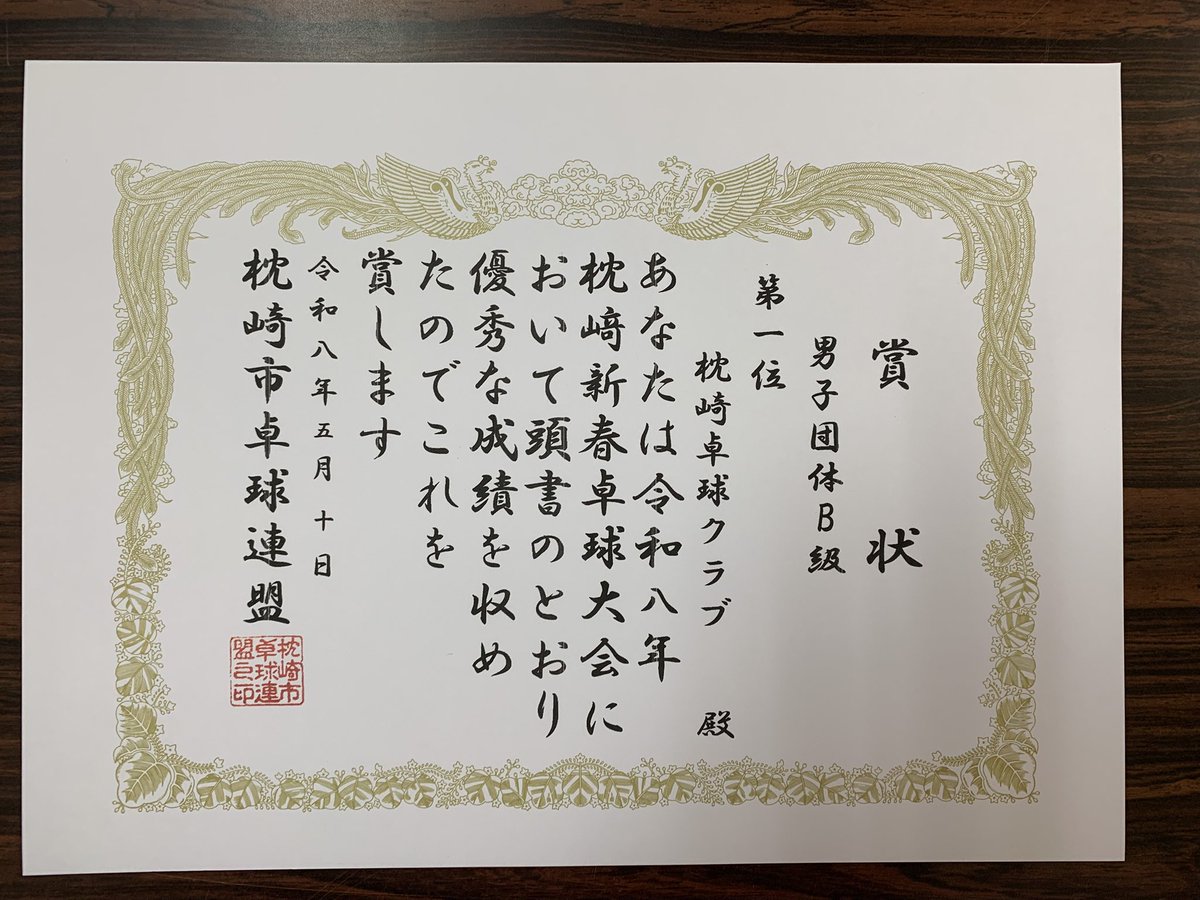 賞状
男子団体B級
第一位
枕崎卓球クラブ 殿
あなたは令和八年
枕﨑新春卓球大会に
おいて頭書のとおり
優秀な成績を収め
たのでこれを
賞します
令和八年五月十日
枕崎市卓球連盟
枕崎市
卓球連
盟之印